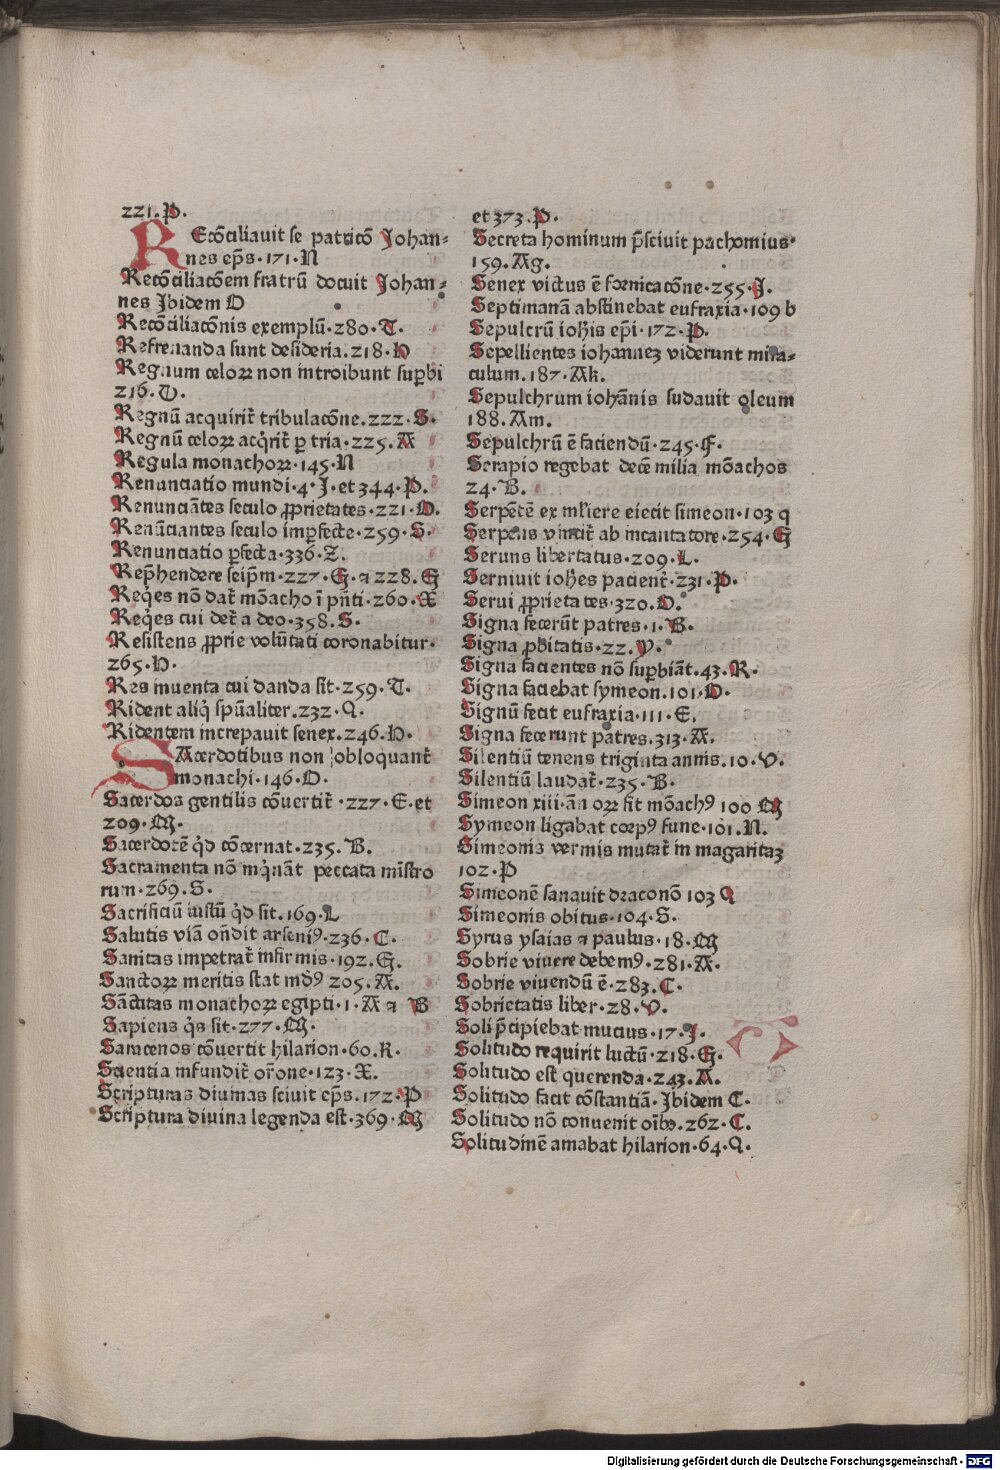 221.P.
REcōciliauit se patricō Johan⸗
nes ep̄s·171·N
Recōciliacōem fratrū docuit Johan⸗
nes Jbidem O
Recōciliacōnis exemplū·280·T.
Refrenanda sunt desideria.218·H
Regnum celoꝝ non introibunt supbi
216.V.
Regnū acquirit᷑ tribulacōne.222.S.
Regnū celoꝝ acq̇rit᷑ ꝑ tria·225.A
Regula monachoꝝ·145·N
Renunciatio mundi·4·J.et 344.P.
Renunciātes seculo ꝓprietates·221·O.
Renūciantes seculo imꝑfecte·259·S.
Renunciatio ꝑfecta·336·Z.
Rep̄hendere seip̄m·227·G·⁊ 228.G
Req̇es nō dat᷑ mōacho ī pn̄ti·260·X
Req̇es cui det᷑ a deo·358.S.
Resistens ꝓprie volūtati coronabitur·
265·H·
Res inuenta cui danda sit·259·T.
Rident aliq̇ spūaliter.232·Q.
Ridentem increpauit senex.246.H·
SAcerdotibus non obloquant᷑
monachi·146·O.
Sacerdos gentilis cōuertit᷑·227·E.et
209·M·
Sacerdotē q̇d cōcernat·235.B.
Sacramenta nō inq̇nāt peccata mīstro
rum·269.S.
Sacrificiū iustū q̇d sit.169·L
Salutis viā on̄dit arseniꝰ·236·C.
Sanitas impetrat᷑ infirmis·192.G.
Sanctoꝝ meritis stat mdꝰ 205.A.
Sāctitas monachoꝝ egipti·1·A ⁊ B
Sapiens q̇s sit·277·M·
Saracenos cōuertit hilarion·60.R·
Scientia infundit᷑ or̄one·123·X.
Scripturas diuinas sciuit ep̄s.172·P
Scriptura diuina legenda est·369·M
et 373.P.
Secreta hominum p̄sciuit pachomius·
159.Ag.
Senex victus ē fornicacōne·255·J.
Septimanā abstinebat eufraxia·109 b
Sepulcrū ioh̄is ep̄i·172·P.
Sepellientes iohannez viderunt mira⸗
culum.187·Ak.
Sepulchrum iohānis sudauit oleum
188.Am.
Sepulchrū ē faciendū·245·F.
Serapio regebat decē milia mōachos
24·B.
Serpētē ex mliere eiecit simeon·103 q
Serpens vincit᷑ ab incantatore·254·G
Seruus libertatus·209.L.
Seruiuit ioh̄es pacient᷑·231·P.
Serui ꝓprietates·320.O.
Signa fecerūt patres·1·B.
Signa ꝓbitatis·22.V.
Signa facientes nō supbiāt.43·R.
Signa faciebat symeon.101·O.
Signū fecit eufraxia·111·E.
Signa fecerunt patres.313·A.
Silentiū tenens triginta annis.10·V.
Silentiū laudat᷑·235·B.
Simeon xiii·an̄oꝝ fit mōachꝰ 100 M
Symeon ligabat corpꝰ fune·101.N.
Simeonis vermis mutat᷑ in magaritaz
102·P
Simeonē sanauit draconō 103 Q
Simeonis obitus·104·S.
Syrus ysaias ⁊ paulus·18·M
Sobrie viuere debemꝰ·281·A.
Sobrie viuendū ē·283.C.
Sobrietatis liber·28·V.
Soli p̄cipiebat mucius·17·J.
Solitudo requirit luctū·218·G.
Solitudo est querenda·243.A.
Solitudo facit cōstantiā·Jbidem C.
Solitudo nō conuenit oībꝰ.262·C.
Solitudinē amabat hilarion·64·Q.
Digitalisierung gefördert durch die Deutsche Forschungsgemeinschaft - DFG